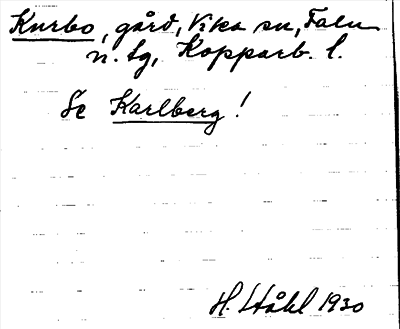 Knrbo, gård, Vika sn, Falu
n. tg, Kopparb. l.
Se Karlberg!
H. Ståhl 1930